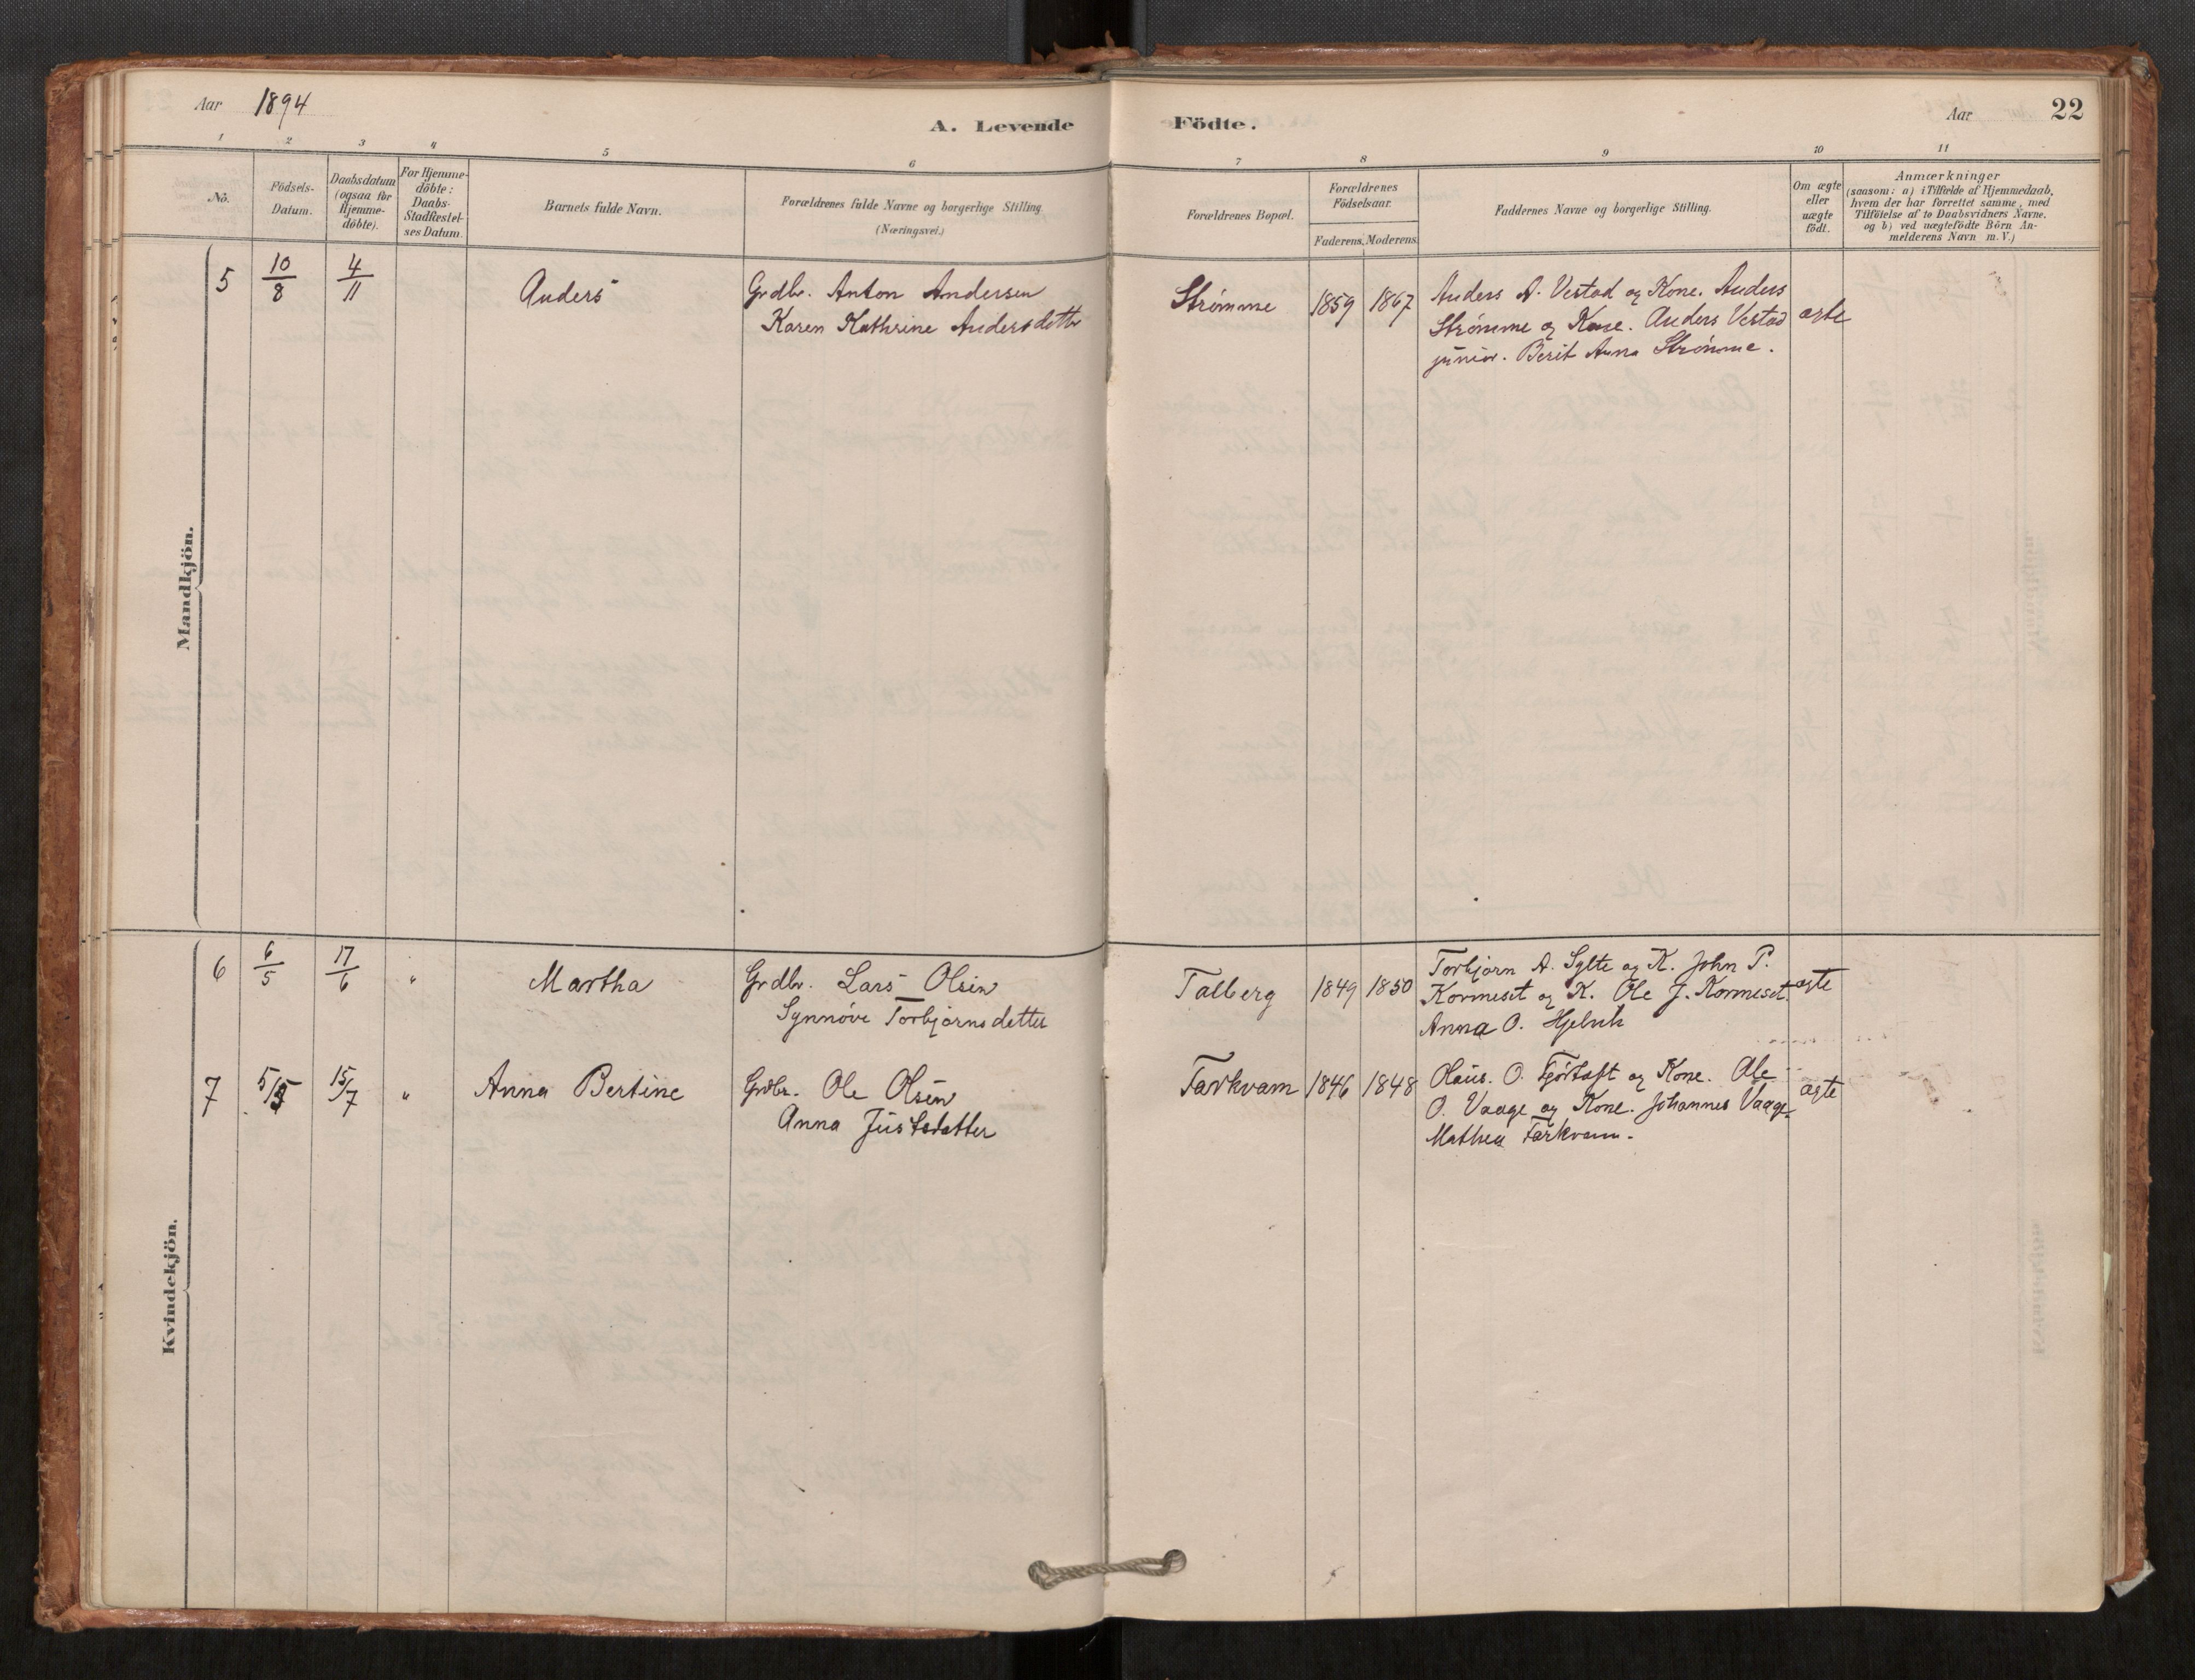 Aar 1894
A. Levende Födte.
Aar 22
1 2 3 4 5 6 7 8 9 10 11
No.
Födsels-
Datum.
Daabsdatum
(ogsaa for
Hjemme-
döbte).
For Hjemme-
döbte:
Daabs-
Stadfæstel-
ses Datum.
Barnets fulde Navn.
Forældrenes fulde Navne og borgerlige Stilling.
(Næringsvei.)
Forældrenes Bopæl.
Forældrenes
Födselsaar.
Faderens. Moderens.
Faddernes Navne og borgerlige Stilling.
Om ægte
eller
uægte
födt.
Anmærkninger
(saasom: a) i Tilfælde af Hjemmedaab,
hvem der har forrettet samme, med
Tilföielse af to Daabsvidners Navne,
og b) ved uægtefödte Börn An-
melderens Navn m.V.)
Mandkjön.
5 10/8 4/11 Anders Grdbr. Anton Andersen Strømme 1859 1867 Anders A. Vestad og Kone. Anders
Karen Kathrine Andersdatter Strømme og Kone. Anders Vestad ægte
junior. Berit Anna Strømme.
Kvindekjön.
6 6/5 17/6 " Martha Grdbr. Lars Olsen Talberg 1849 1850 Torbjørn A. Sylte og K. John P.
Synnøve Torbjørnsdatter Kormeset og K. Ole J. Kormeset. ægte
Anna O. Hjelvik
7 5/5 15/7 " Anna Bertine Grdbr. Ole Olsen Farkvam 1846 1848 Olaus. O. Fjørtoft og Kone. Ole
Anna Justsdatter O. Vaage og Kone. Johannes Vaage. ægte
Mathea Farkvam.